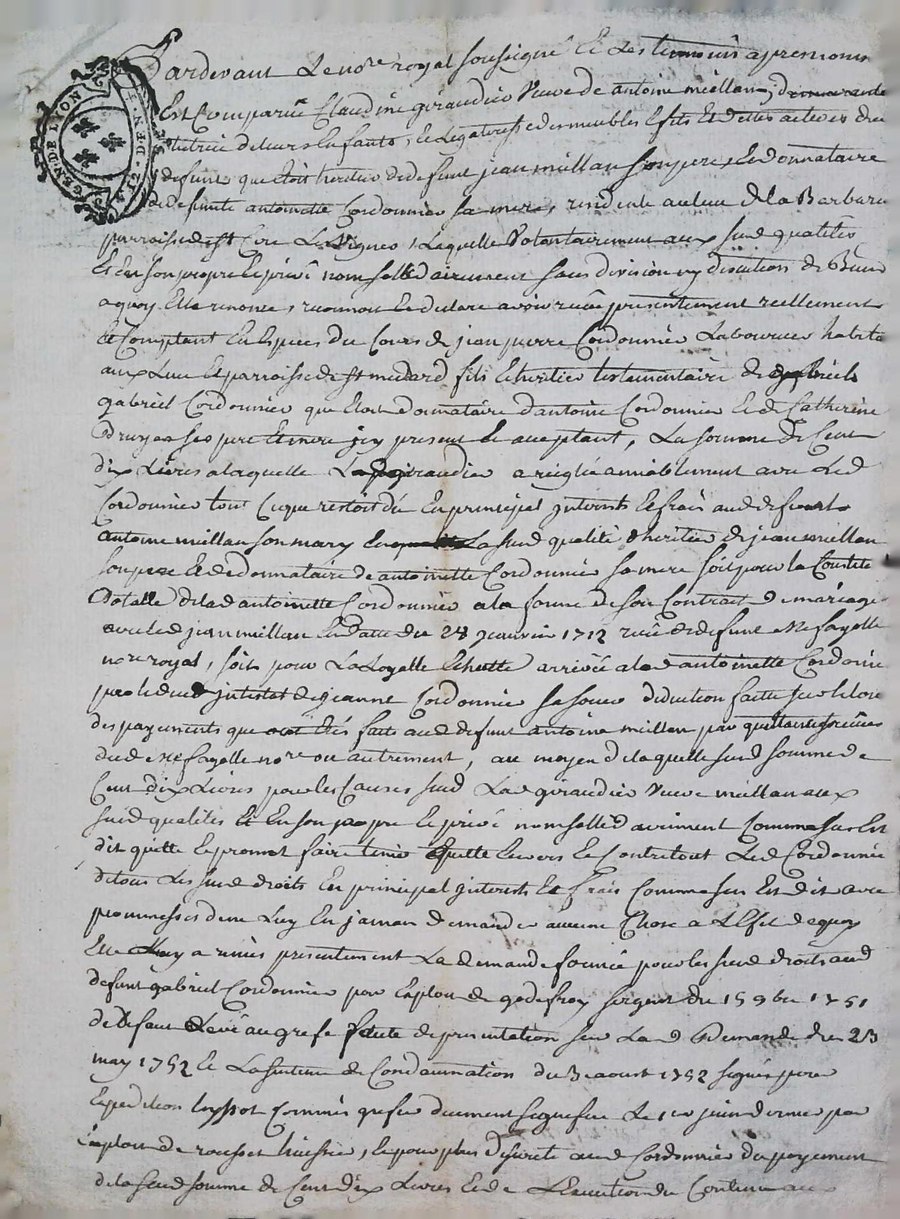 GEN. DE LYON
Pardevant Le no.re royal soussigné Et Les temoins apres nommes
Est Comparüe Claudine giraudier Veuve de antoine meillan, demeurante
tutrice de leurs Enfants, et Legatrisse des meubles Efets Et dettes actives du
defunt que étoit heritier de defunt jean meillan son pere, et donnataire
de defunte antoinette Cordonnier sa mere, residente au lieu de La Barbary
parroisse de st Cire Les Vignes, Laquelle Volontairement aux susd qualités
Et En son propre Et privé nom sollidairement sans division ny discution de Biens
a quoy Elle renonce, reconnoit Et declare avoir reçu presentement reellement
Et Comptant En Espèces du Cours de jean pierre Cordonnier Laboureur habitant
au Lieu Et parroisse de st medard fils Et heritier testamentaire de
gabriel Cordonnier que Etoit donnataire d'antoine Cordonnier Et de Catherine
ses pere Et mere icy present Et acceptant, La somme de Cent
dix Livres a laquelle La giraudier a reiglé amiablement avec Led
Cordonnier tout Ce que restoit dû En principal interests Et frais aud defunt
antoine meillan son mary En La susd qualité d'heritier de jean meillan
son pere Et de donnataire de antoinette Cordonnier sa mere soit pour la Constit.
Dotalle de lad antoinette Cordonnier a la forme de son Contrait de mariage
avec led jean meillan En datte du 28 janvier 1712 reçu de defunt Me fayolle
nore royal, soit pour La Legalle Echutte arrivée a lad antoinette Cordonnier
par le deces intestat de jeanne Cordonnier sa soeur deduction faitte sur le tout
des payements que ont étés faits aud defunt antoine meillan par quittance
dud Me fayolle nore ou autrement, au moyen de laquelle susd somme de
Cent dix Livres pour les Causes susd La giraudier Veuve meillan aux
susd qualités Et En son propre Et privé nom sollidairement Comme sus Est
dit quitte Et promet faire tenir quitte Envers Et Contre tout Led Cordonnier
de tous Les susd droits En principal interests Et frais Comme sus Est dit avec
promesses de ne Luy En jamais demander aucune Chose a L'Efet de quoy
Elle a remis presentement La demande formée pour les susd droits aud
defunt gabriel Cordonnier par Exploit de godefroy sergent du 15 9bre 1751
de Defaut Levé au grefe faute de presentation sur Lad Demande du 23
may 1752 Et La sentence de Condamnation du 3 aoust 1752 signée pour
Expedition Commis grefier duement signifiée Le 1er juin dernier par
Exploit de rousset huissier, Et pour plus de sureté aud Cordonnier du payement
de la susd somme de Cent dix Livres Et de L'Execution du Contenu aux